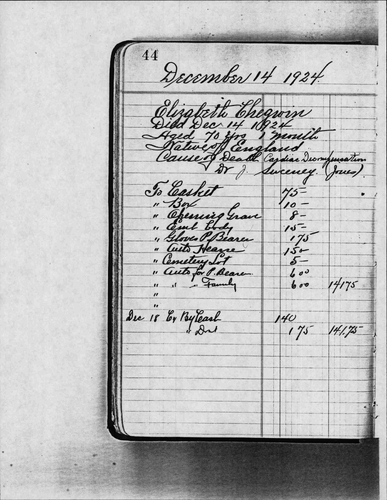 44
December 14 1924
Elizabeth Chegwin
Died Dec 14 1924
Aged 70 yrs 1 month
Native of England
Cause of Death Cardiac Decompensation
Dr J Sweeney (Jones)
To Casket 75-
" Box 10-
" Opening Grave 8-
" Emb body 15-
" Gloves P Bearer 1 75
" Auto Hearse 15-
" Cemetery Lot 5-
" Auto for P. Bearer 6 00
" " " Family 6 00 141 75
"
"
Dec 18 Cr By Cash 140
" 1 75 141.75